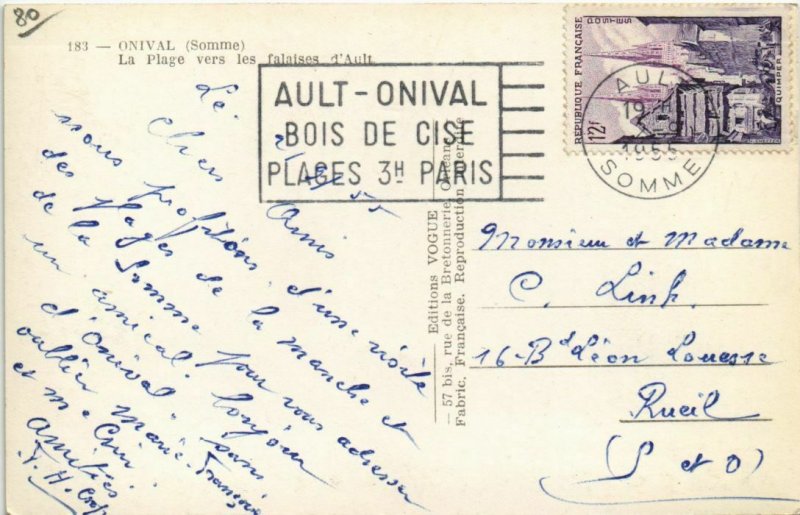 80
183 — ONIVAL (Somme)
La Plage vers les falaises d'Ault
AULT-ONIVAL
BOIS DE CISE
PLAGES 3H PARIS
RÉPUBLIQUE FRANÇAISE
POSTES
12f
QUIMPER
AULT
1955
SOMME
Le
55
Chers Amis
nous profitons d'une visite
des Plages de la manche et
de la Somme pour vous adresser
un amical bonjour
d'Onival, sans
oublier Marie-Françoise
et
Amitiés
Editions VOGUE
— 57 bis, rue de la Bretonnerie,
Fabric. Française. Reproduction
Monsieur et Madame
C. Link
16-Bd Léon
Rueil
(S et O)